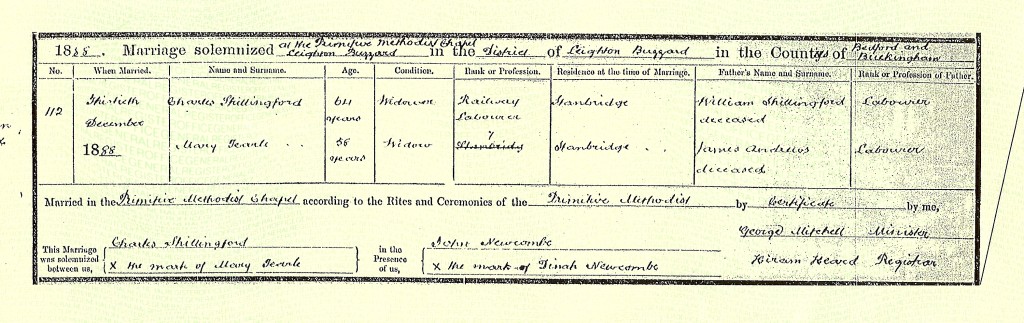 1888. Marriage solemnized at the Primitive Methodist Chapel Leighton Buzzard in the District of Leighton Buzzard in the Counties of Bedford and Buckingham
No. When Married. Name and Surname. Age. Condition. Rank or Profession. Residence at the time of Marriage. Father's Name and Surname. Rank or Profession of Father.
112 Thirtieth December 1888 Charles Shillingford 64 years Widower Railway Labourer Stanbridge William Shillingford deceased Labourer
Mary Tearle 56 years Widow Stanbridge James Andrews deceased Labourer
Married in the Primitive Methodist Chapel according to the Rites and Ceremonies of the Primitive Methodist by Certificate by me,
George Mitchell Minister
This Marriage was solemnized between us, Charles Shillingford in the Presence of us, John Newcombe
X the mark of Mary Tearle X the mark of Dinah Newcombe Hiram Heard Registrar